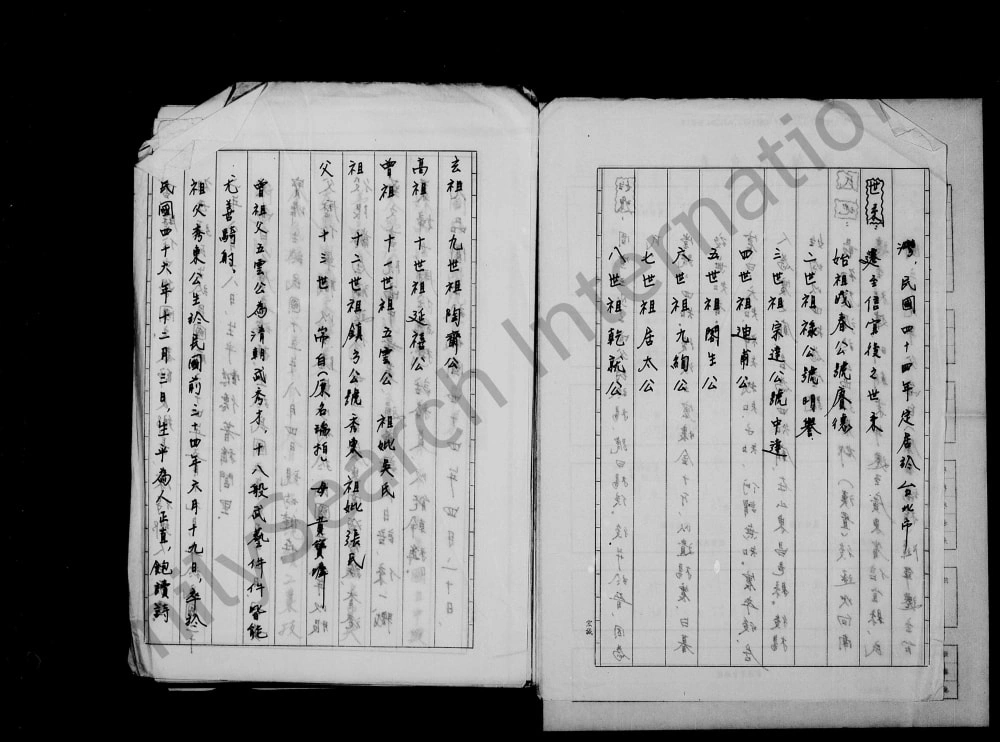 灣，民國四十四年定居於台北市
世系 遷至信宜後之世系
始祖茂春公號賡德
二世祖祿公號明譽
三世祖宗達公號中達
四世祖迪甫公
五世祖闇生公
六世祖九絢公
七世祖居太公
八世祖乾就公
玄祖 九世祖陶齋公
高祖 十世祖延禧公
曾祖 十一世祖五雲公 祖妣吳氏
祖 十二世祖鎮方公號秀東 祖妣張氏
父 十三世 常自（原名瑞柏） 母黃寶嬋
曾祖父五雲公為清朝武秀才，十八般武藝件件皆能
尤善騎射，
祖父秀東公生於民國前三十四年六月十九日，卒於
民國四十六年十二月三日，生平為人正直，飽讀詩
FamilySearch International